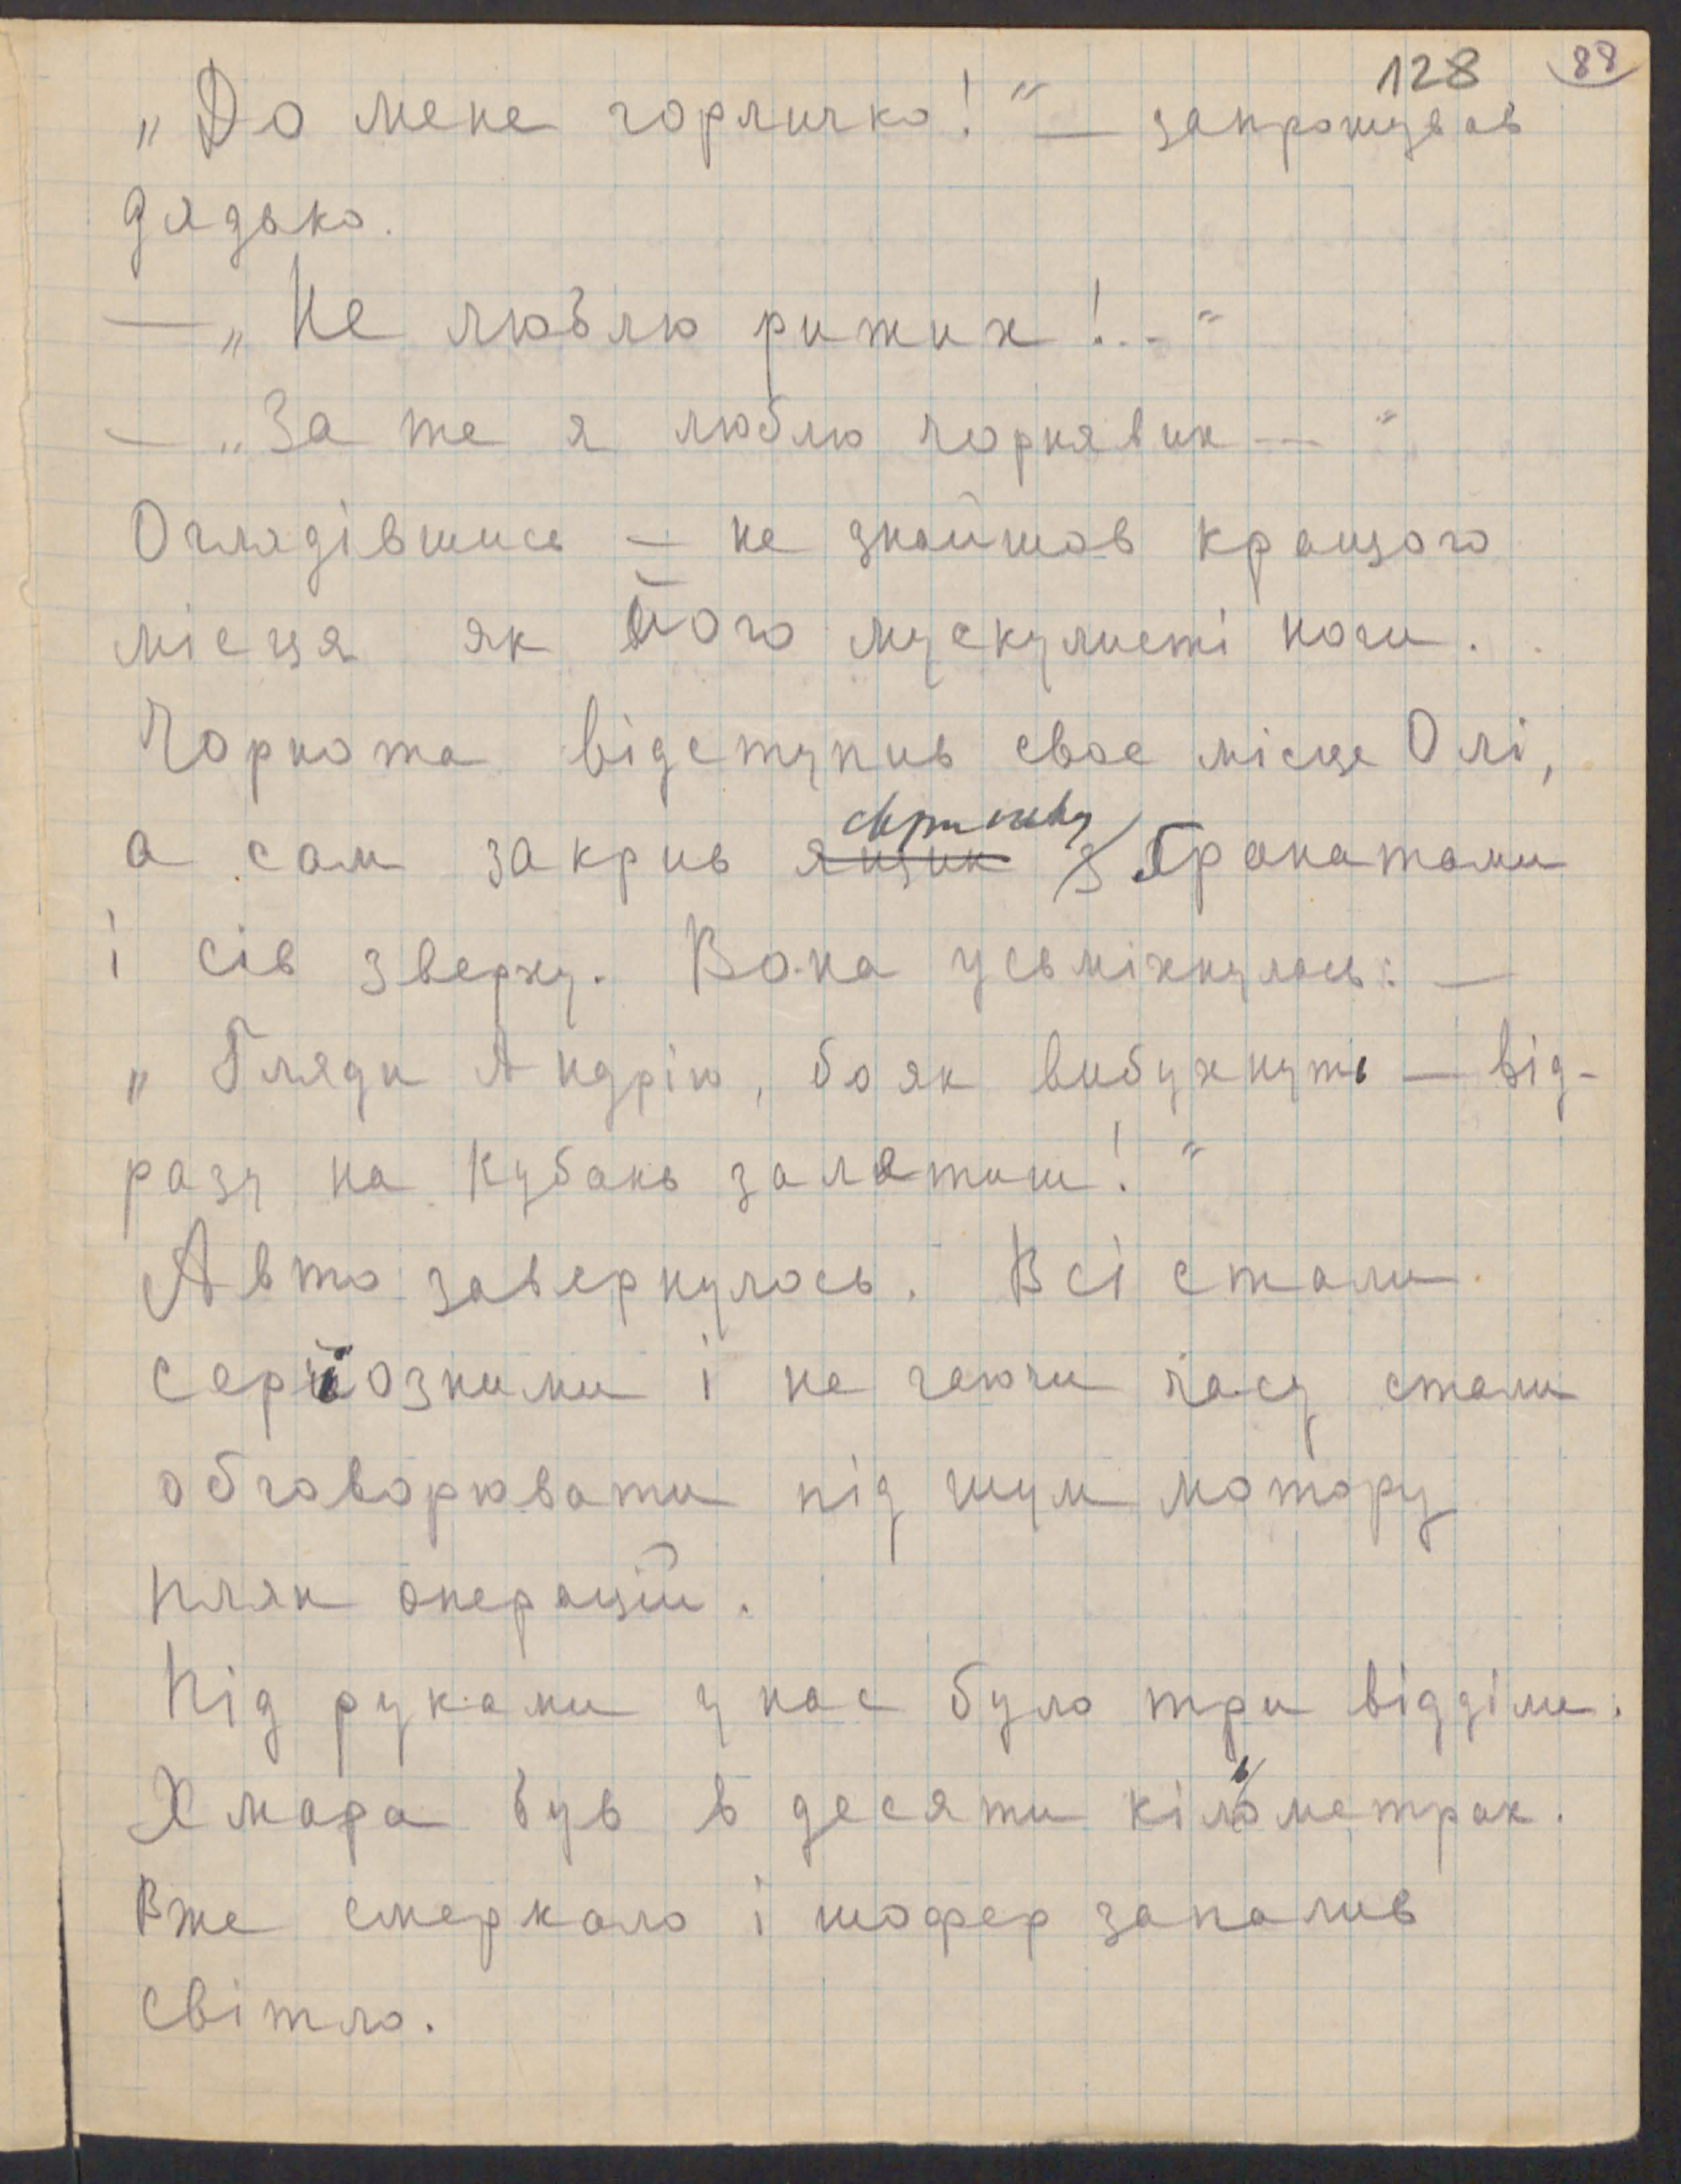 128 88
„До мене горличко!“ — запрошував
дядько.
— „Не люблю рижих!..“
— „За те я люблю чорнявих —“
Оглядівшись — не знайшов кращого
місця як його мускулисті ноги.
Чорнота відступив своє місце Олі,
скриньку
а сам закрив ящик з ґранатами
і сів зверху. Вона усьміхнулась: —
„Гляди Андрію, бо як вибухнуть — від-
разу на Кубань залетиш!“
Авто завернулось. Всі стали
серіозними і не гаючи часу стали
обговорювати під шум мотору
плян операцій.
Під руками у нас було три відділи.
Хмара був в десяти кільометрах.
Вже смеркало і шофер запалив
світло.